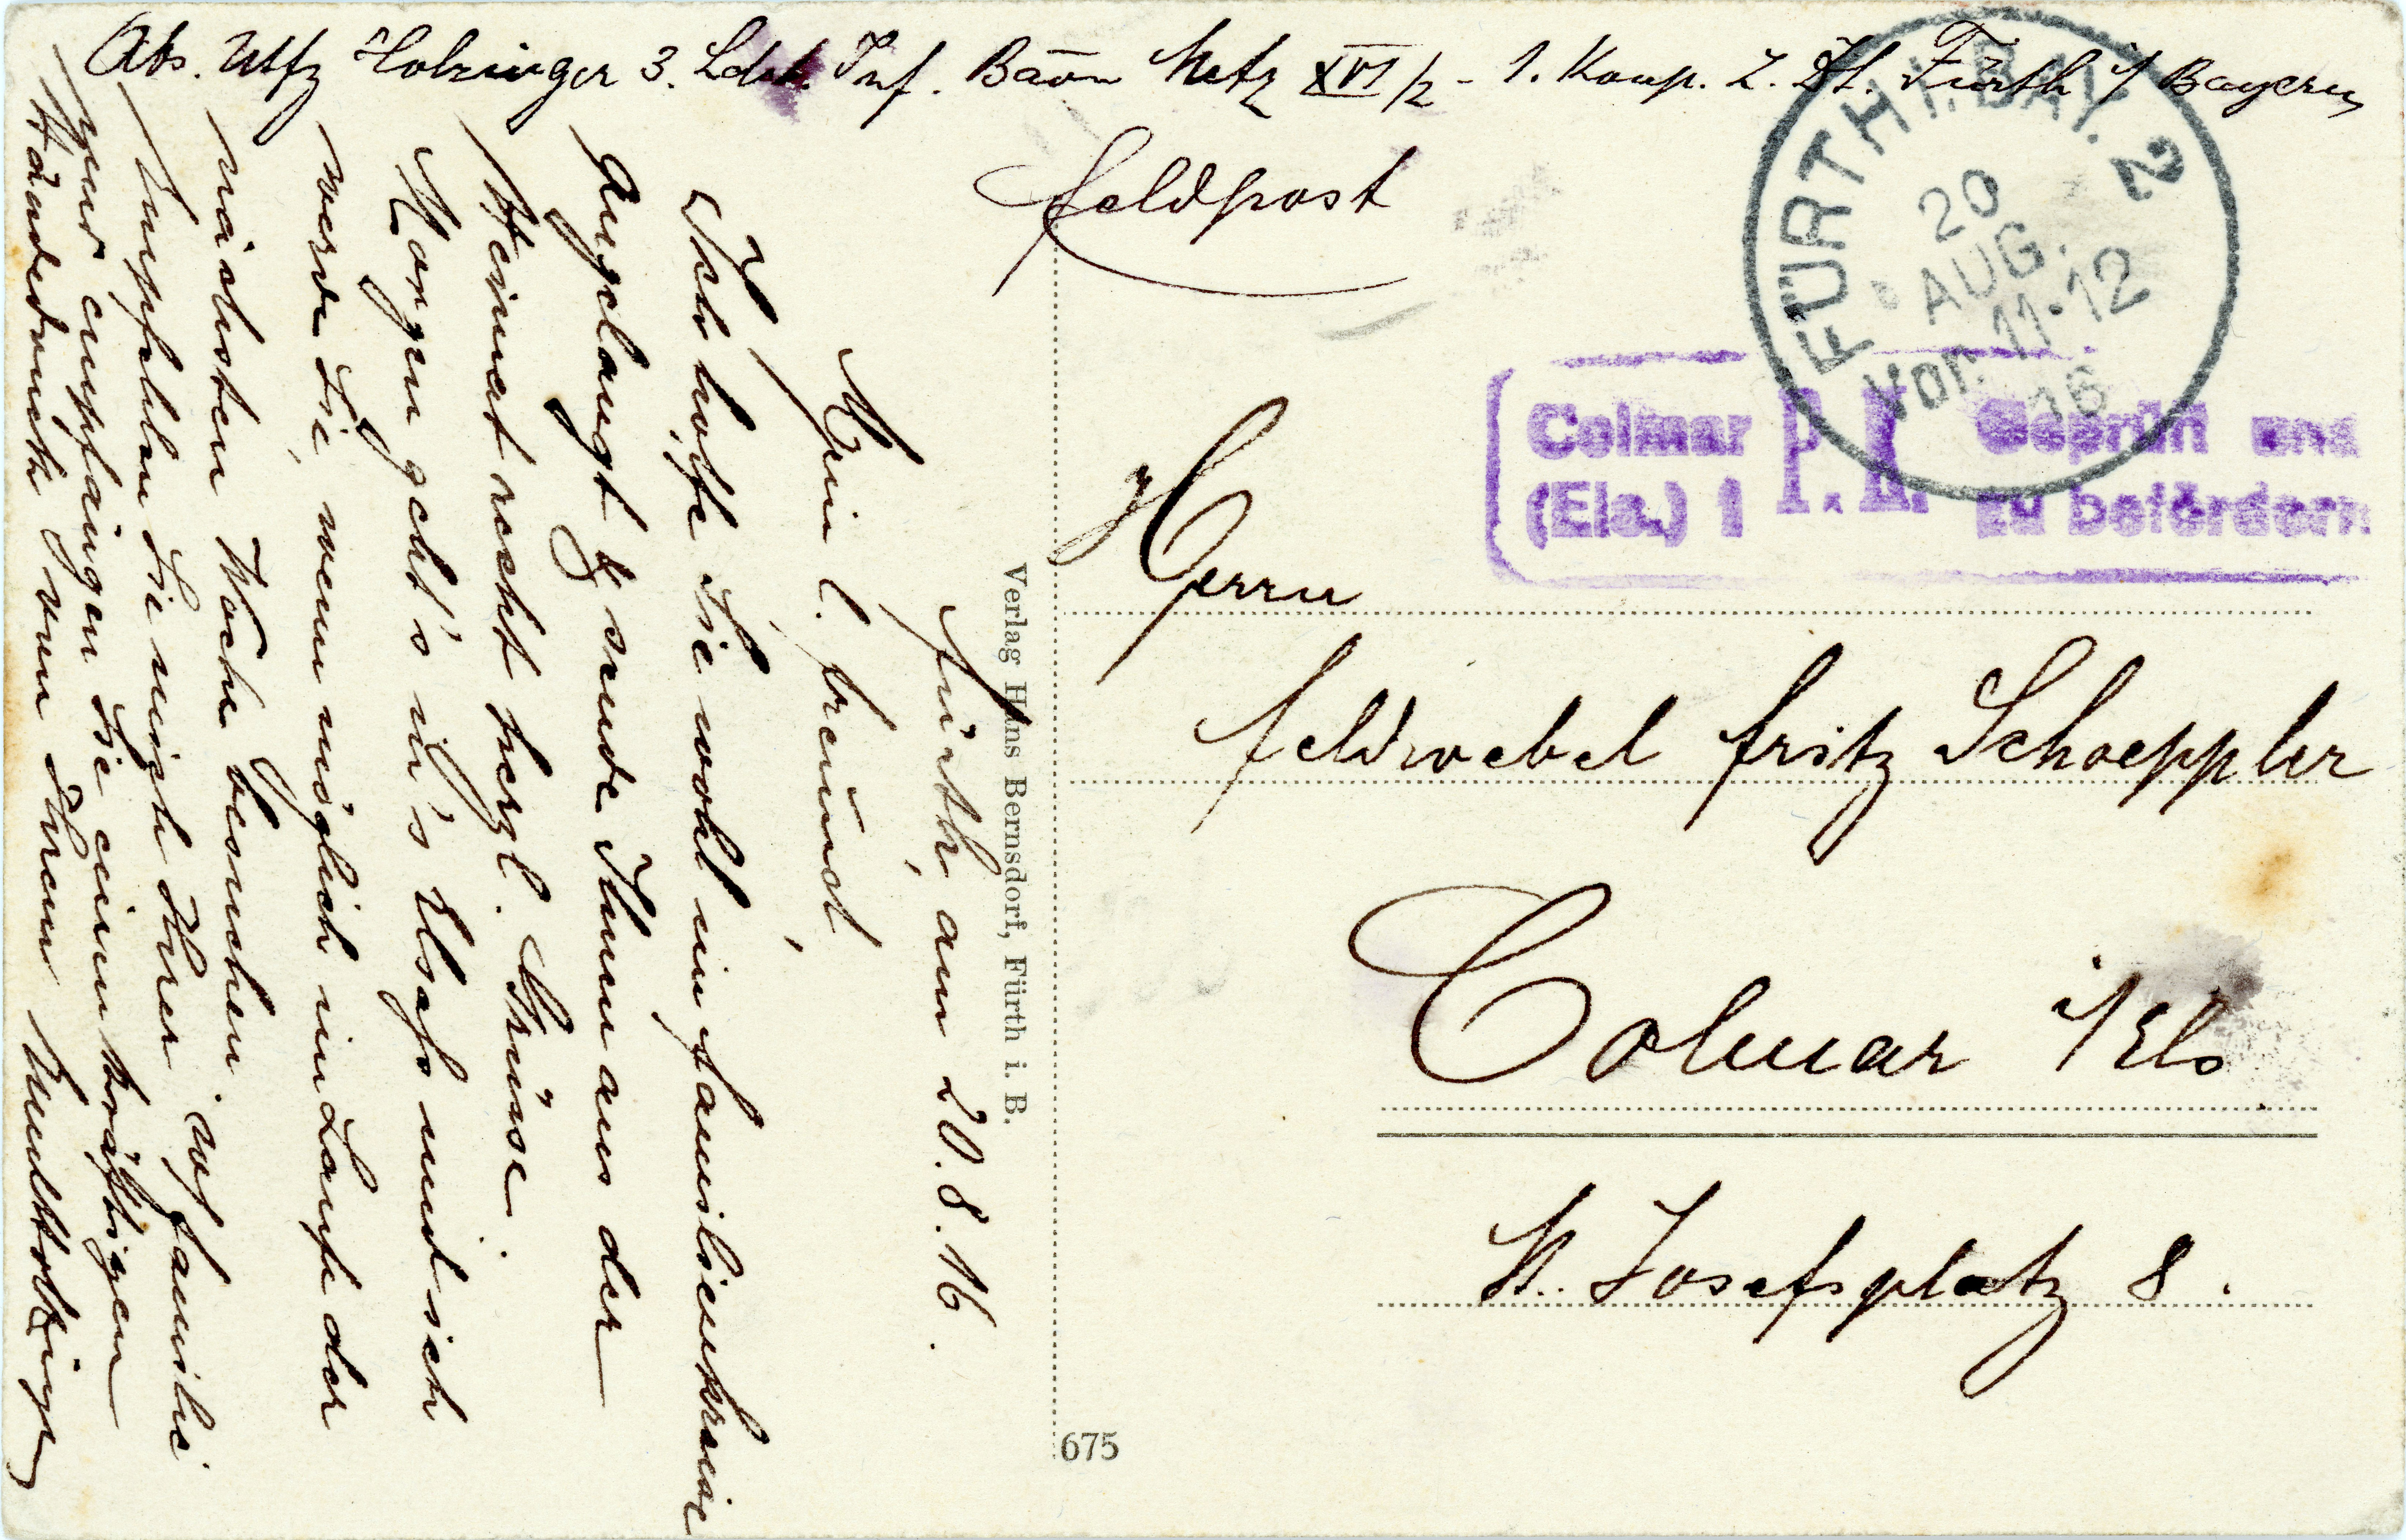 Abs. Utfz Holzinger 3. Ldst. Inf. Baon Metz XVI/2 - 1. Komp. z. Zt. Fürth i/ Bayern
Feldpost
FÜRTH I. BAY. 2
20
AUG.
Vor. 11-12
16
Colmar P. K. Geprüft und
(Els.) 1 zu befördern
Herrn
Feldwebel Fritz Schoeppler
Colmar i/Els
St. Josefsplatz 8.
Verlag Hans Bernsdorf, Fürth i. B.
675
Fürth, am 20.8.16.
Mein l. Freund,
Ich hoffe Sie wohl im Familienkreise
angelangt & sende Ihnen aus der
Heimat recht herzl. Grüsse.
Morgen geht's in's Elsaß und ich
werde Sie, wenn möglich im Laufe der
nächsten Woche besuchen.
Empfehlen Sie mich Ihrer w. Familie
und empfangen Sie einen kräftigen
Händedruck von Ihrem Holzinger